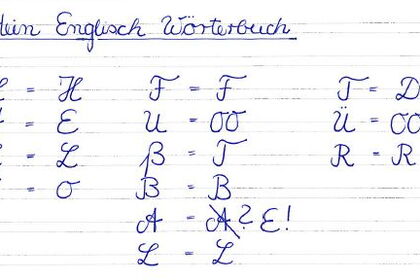 Mein Englisch Wörterbuch
= H F = F T = D
= E U = OO Ü = OO
= L ß = T R = R
= O B = B
A = A? E!
L = L